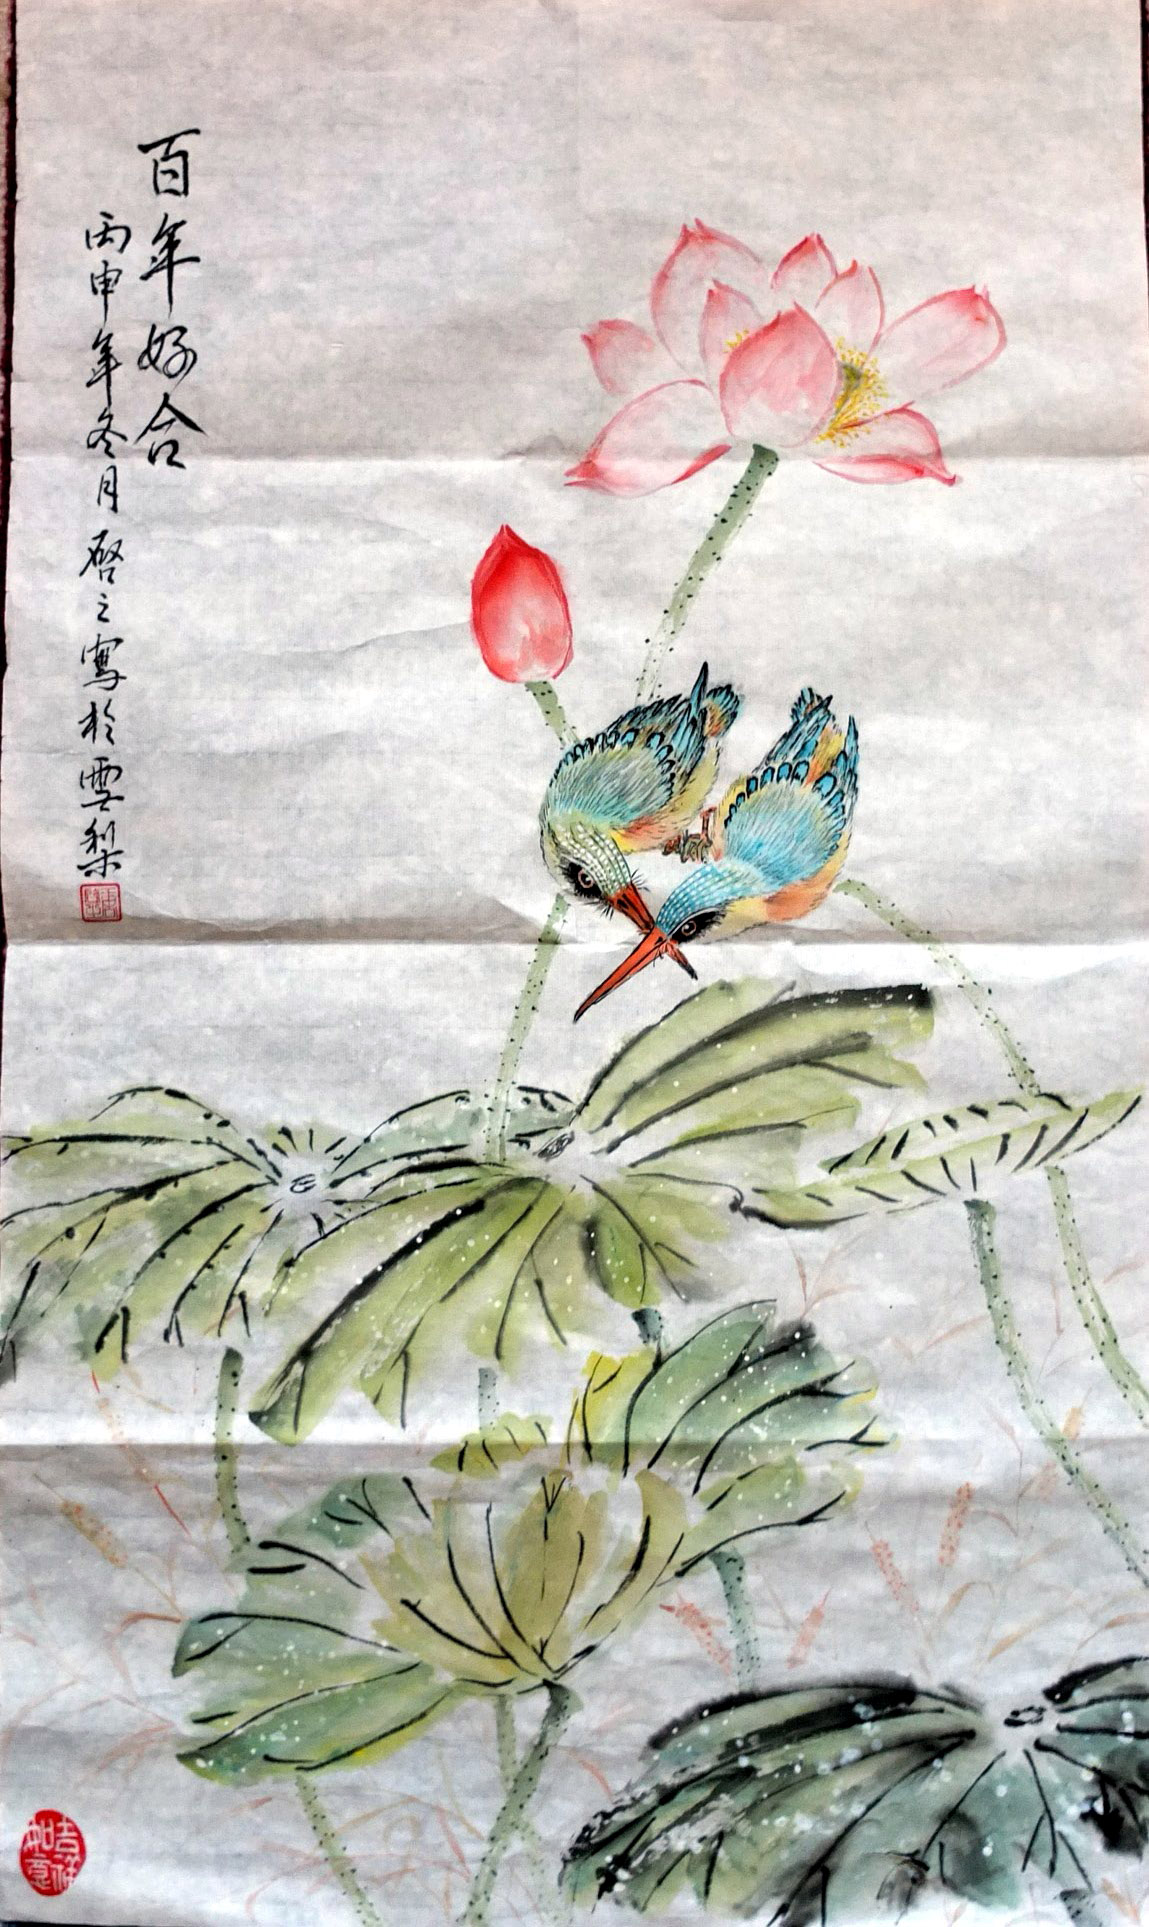 百年好合
丙申年冬月啓之寫於雲梨
吉祥如意